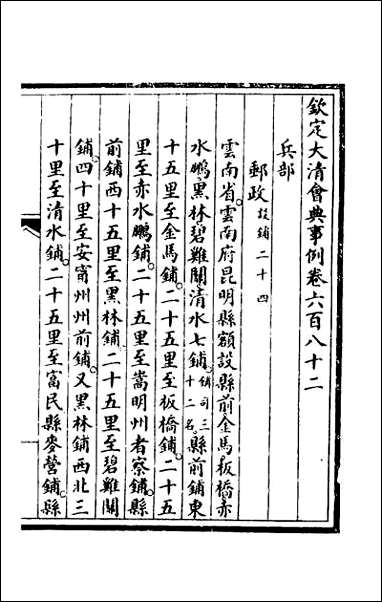 欽定大清會典事例卷六百八十二
兵部
郵政設鋪二十四
雲南省雲南府昆明縣額設縣前金馬板橋赤
水鵬黑林碧雞關清水七鋪鋪司三十二名縣前鋪東
十五里至金馬鋪二十五里至板橋鋪二十五
里至赤水鵬鋪二十五里至嵩明州者察鋪縣
前鋪西十五里至黑林鋪二十五里至碧雞關
鋪四十里至安甯州州前鋪又黑林鋪西北三
十里至清水鋪二十五里至富民縣麥營鋪縣